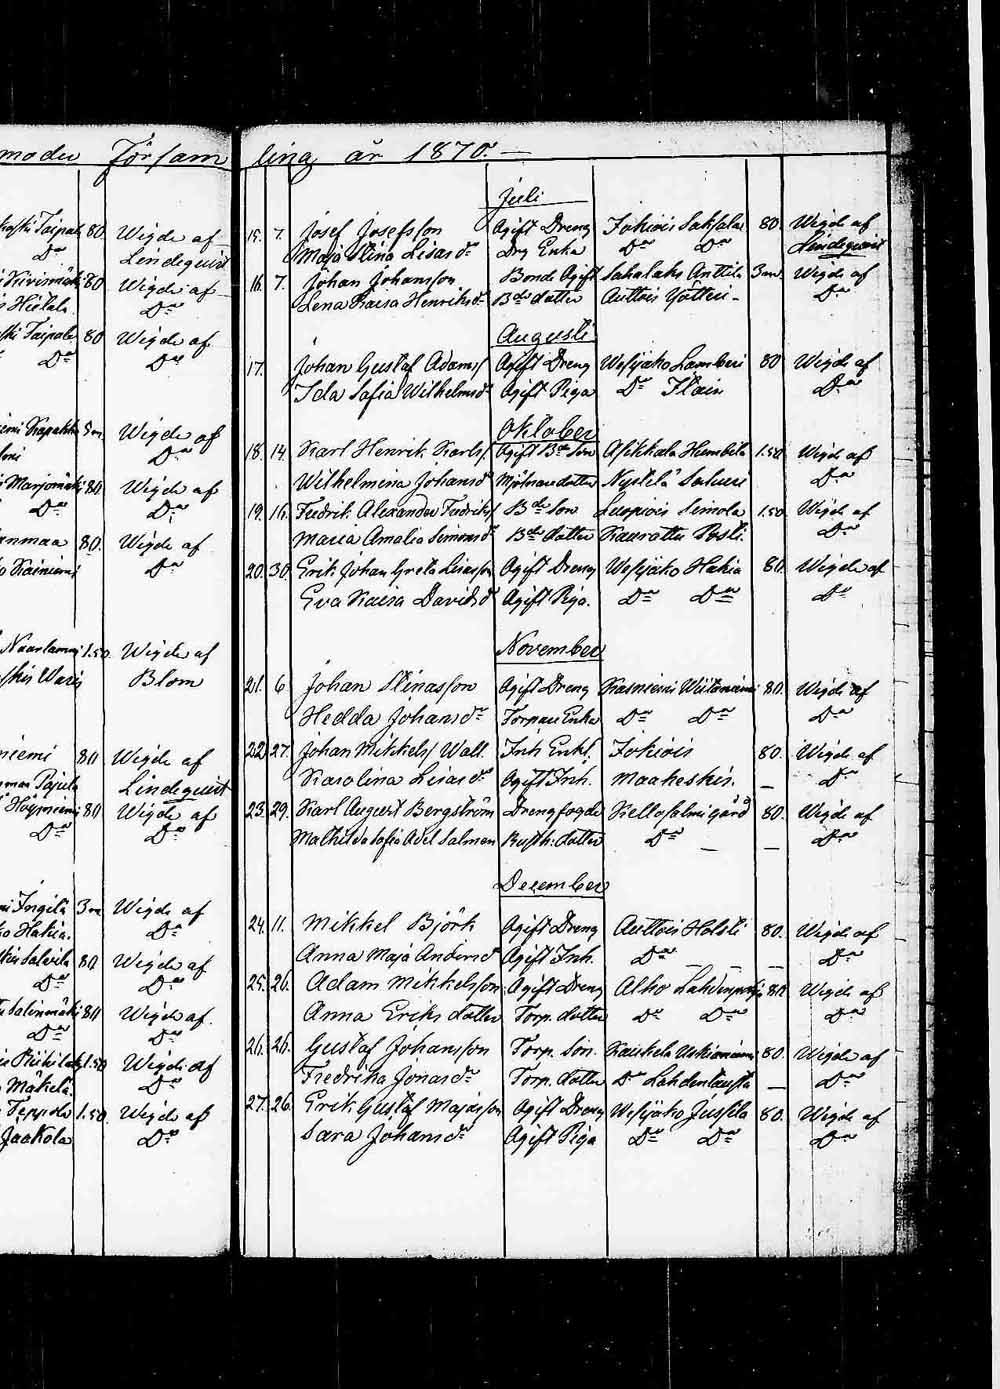 moder Församling år 1870. —
Taipale 80 Wigde af
Do Lindequist
80 Wigde af
Do
Taipale 80 Wigde af
Do Do
3 m. Wigde af
Do
80 Wigde af
Do Do
80. Wigde af
Do
1.50. Wigde af
Blom
niemi 80 Wigde af
Lindequist
80 Wigde af
Do Do
Ingilä 3 m Wigde af
Hakia. Do
80 Wigde af
Do Do
80 Wigde af
Do Do
1.50 Wigde af
Mäkelä. Do
Seppälä 1.50. Wigde af
Jaakola Do
Juli
15. 7. Josef Josefsson Agift Dreng Jokiois Saksala 80 Wigde af
Maja Stina Lisasdr Drg Enka Do Do Lindequist
16. 7. Johan Johansson Bonde Agift Sahalaks Anttila 3 m. Wigde af
Lena Kaisa Henriksdr Bde dotter Auttois Yötteri - Do
Augusti
17. Johan Gustaf Adamss Agift Dreng Wesijako Lamberi 80 Wigde af
Ida Sofia Wilhelmsdr Agift Piga Do Ilain Do
Oktober
18. 14. Karl Henrik Karlss. Agift Bde Son Asikkala Humbila 1.50 Wigde af
Wilhelmina Johansdr Mjölnare dotter Nystelä Do
19. 16. Fredrik Alexander Fredrikss Bde Son Luopiois Simola 1.50. Wigde af
Maria Amalia Simonsdr Bde dotter Posti. Do
20. 30. Erik Johan Greta Lisasson Agift Dreng Wesijako Hakia 80. Wigde af
Eva Kaisa Davidsdr Agift Piga. Do Do Do
November
21. 6 Johan Stinasson Agift Dreng Kasniemi Wiitaniemi 80. Wigde af
Hedda Johansdr Torpare Enka Do Do Do
22. 27. Johan Mikkelss Wall. Inh Enkl. Jokiois 80. Wigde af
Karolina Lisasdr Agift Inh. Maakeskis. — Do
23. 29. Karl August Bergström Drengfogde Kellosalmi gård 80. Wigde af
Mathilda Sofia Adel Salmen Rusth: dotter Do — — Do
December
24. 11. Mikkel Björk Agift Dreng Auttois Holsti 80. Wigde af
Anna Maja Andersdr Agift Inh. Do — — Do
25. 26. Adam Mikkelsson Agift Dreng Alho 80 Wigde af
Anna Eriks dotter Torp. dotter Do Do Do
26. 26. Gustaf Johansson Torp. Son. 80. Wigde af
Fredrika Jonasdr Torp. dotter Do Lahdentausta — Do
27. 26. Erik Gustaf Majasson Agift Dreng Wesijako Jussila 80. Wigde af
Sara Johansdr Agift Piga Do Do Do